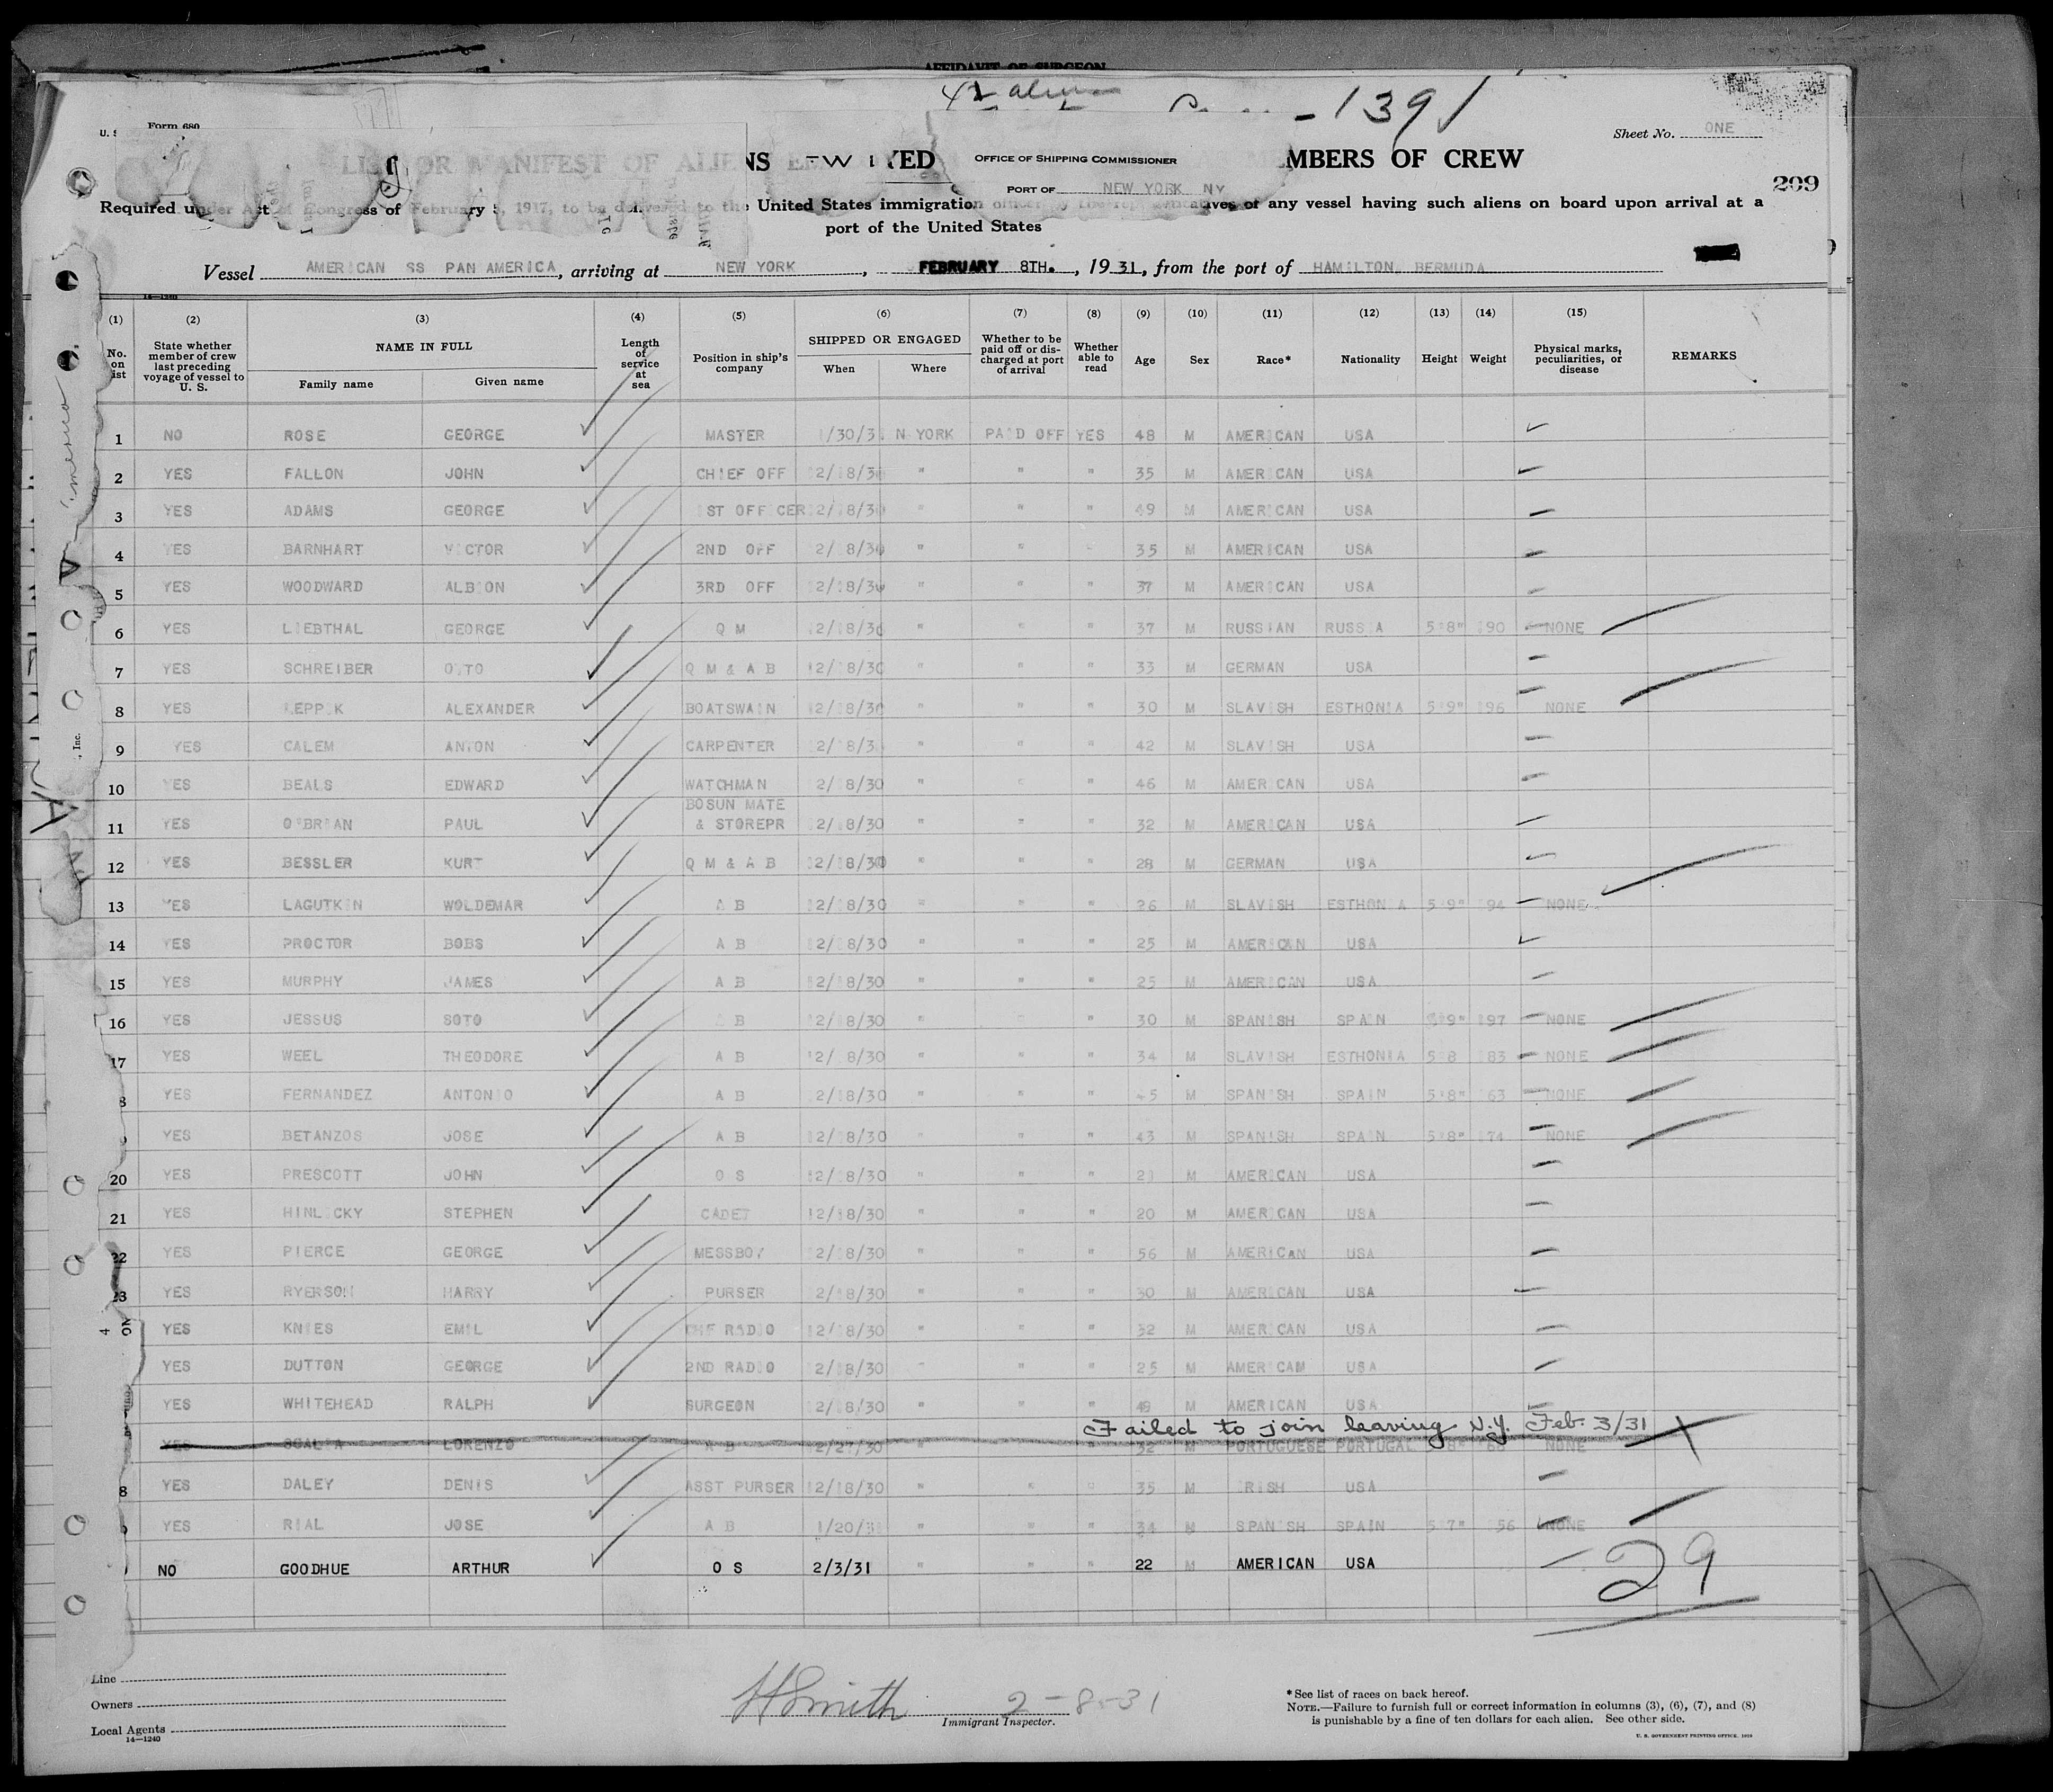 AFFIDAVIT OF SURGEON
4 alien
-1391
U. S Form 680
Sheet No. ONE
LIST OR MANIFEST OF ALIENS EMPLOYED MBERS OF CREW
OFFICE OF SHIPPING COMMISSIONER
PORT OF NEW YORK NY
209
Required under Act of Congress of February 5, 1917, to be delivered to the United States immigration of any vessel having such aliens on board upon arrival at a
port of the United States
Vessel AMERICAN SS PAN AMERICA, arriving at NEW YORK, FEBRUARY 8TH., 1931, from the port of HAMILTON, BERMUDA
(1) (2) (3) (4) (5) (6) (7) (8) (9) (10) (11) (12) (13) (14) (15)
No. on list State whether member of crew last preceding voyage of vessel to U. S. NAME IN FULL Family name Given name Length of service at sea Position in ship's company SHIPPED OR ENGAGED When Where Whether to be paid off or discharged at port of arrival Whether able to read Age Sex Race* Nationality Height Weight Physical marks, peculiarities, or disease REMARKS
1 NO ROSE GEORGE MASTER 1/30/31 N YORK PAID OFF YES 48 M AMERICAN USA
2 YES FALLON JOHN CHIEF OFF 12/18/30 " " " 35 M AMERICAN USA
3 YES ADAMS GEORGE 1ST OFFICER 12/18/30 " " " 49 M AMERICAN USA
4 YES BARNHART VICTOR 2ND OFF 12/18/30 " " " 35 M AMERICAN USA
5 YES WOODWARD ALBION 3RD OFF 12/18/30 " " " 37 M AMERICAN USA
6 YES LIEBTHAL GEORGE Q M 12/18/30 " " " 37 M RUSSIAN RUSSIA 5'8" 190 NONE
7 YES SCHREIBER OTTO Q M & A B 12/18/30 " " " 33 M GERMAN USA
8 YES LEPPIK ALEXANDER BOATSWAIN 12/18/30 " " " 30 M SLAVISH ESTHONIA 5'9" 196 NONE
9 YES CALEM ANTON CARPENTER 12/18/30 " " " 42 M SLAVISH USA
10 YES BEALS EDWARD WATCHMAN 12/18/30 " " " 46 M AMERICAN USA
BOSUN MATE
11 YES O'BRIAN PAUL & STOREPR 12/18/30 " " " 32 M AMERICAN USA
12 YES BESSLER KURT Q M & A B 12/18/30 " " " 28 M GERMAN USA
13 YES LAGUTKIN WOLDEMAR A B 12/18/30 " " " 26 M SLAVISH ESTHONIA 5'9" 194 NONE
14 YES PROCTOR BOBS A B 12/18/30 " " " 25 M AMERICAN USA
15 YES MURPHY JAMES A B 12/18/30 " " " 25 M AMERICAN USA
16 YES JESSUS SOTO A B 12/18/30 " " " 30 M SPANISH SPAIN 5'9" 197 NONE
17 YES WEEL THEODORE A B 12/18/30 " " " 34 M SLAVISH ESTHONIA 5'8 183 NONE
8 YES FERNANDEZ ANTONIO A B 12/18/30 " " " 45 M SPANISH SPAIN 5'8" 163 NONE
YES BETANZOS JOSE A B 12/18/30 " " " 43 M SPANISH SPAIN 5'8" 174 NONE
20 YES PRESCOTT JOHN O S 12/18/30 " " " 21 M AMERICAN USA
21 YES HINLICKY STEPHEN CADET 12/18/30 " " " 20 M AMERICAN USA
22 YES PIERCE GEORGE MESSBOY 12/18/30 " " " 56 M AMERICAN USA
23 YES RYERSON HARRY PURSER 12/18/30 " " " 30 M AMERICAN USA
4 YES KNIES EMIL CHF RADIO 12/18/30 " " " 32 M AMERICAN USA
YES DUTTON GEORGE 2ND RADIO 12/18/30 " " " 25 M AMERICAM USA
YES WHITEHEAD RALPH SURGEON 12/18/30 " " " 49 M AMERICAN USA
Failed to join leaving N.Y. Feb. 3/31
YES LORENZO A B 12/27/30 " 32 M PORTUGUESE PORTUGAL NONE
8 YES DALEY DENIS ASST PURSER 12/18/30 " " " 35 M IRISH USA
YES RIAL JOSE A B 1/20/31 " " " 34 M SPANISH SPAIN 5'7" 156 NONE
NO GOODHUE ARTHUR O S 2/3/31 " " " 22 M AMERICAN USA
29
Line
Owners
Local Agents
14—1240
H Smith 2-8-31
Immigrant Inspector.
* See list of races on back hereof.
NOTE.—Failure to furnish full or correct information in columns (3), (6), (7), and (8)
is punishable by a fine of ten dollars for each alien. See other side.
U. S. GOVERNMENT PRINTING OFFICE